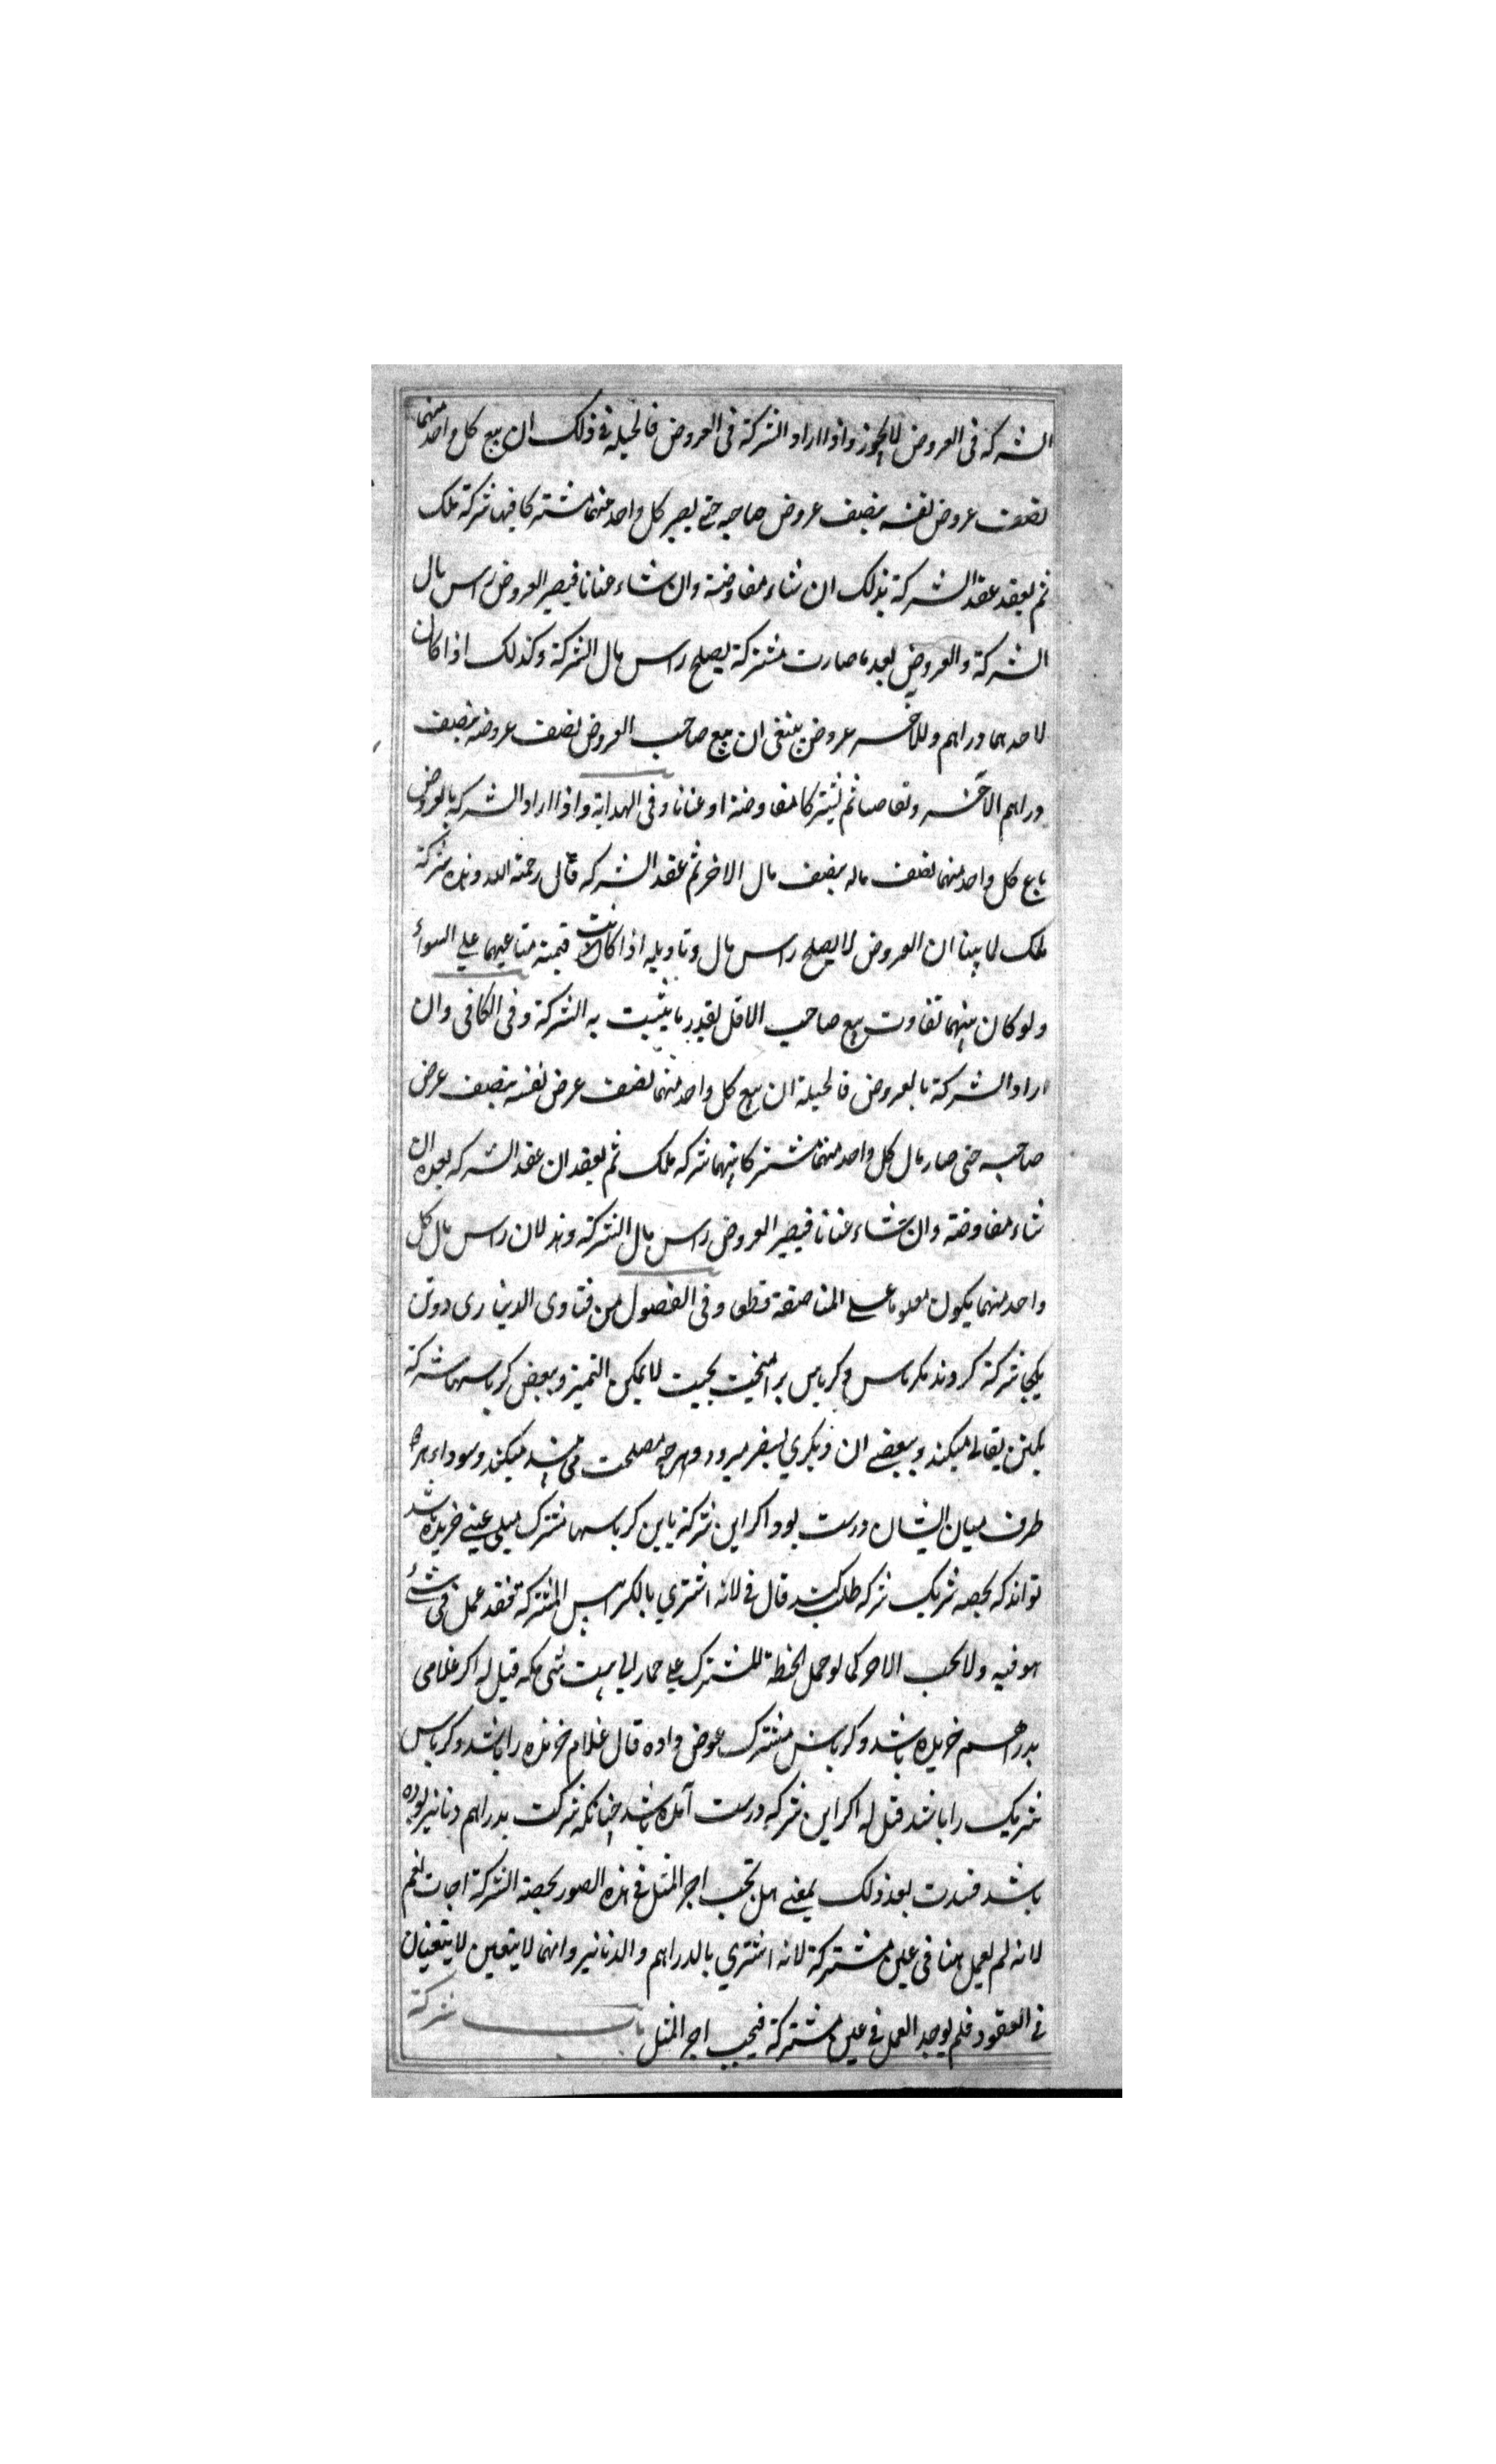 الشركة فى العروض لا يجوز واذا اراد الشركة فى العروض فالحيلة فى ذلك ان يبيع كل واحد منهما
نصف عروض نفسه بنصف عروض صاحبه حتى يصير كل واحد منهما مشتركا فيها شركة ملك
ثم يعقد عقد الشركة بذلك ان شاء مفاوضة وان شاء عنانا فيصير العروض راس مال
الشركة والعروض بعد ما صارت مشتركة يصلح راس مال الشركة وكذلك اذا كان
لاحدهما دراهم وللاخر عروض ينبغى ان يبيع صاحب العروض نصف عروضه بنصف
دراهم الاخر وتقابضا ثم يشتركا مفاوضة او عنانا وفى الهداية واذا اراد الشركة بالعروض
باع كل واحد منهما نصف ماله بنصف مال الاخر ثم عقد الشركة قال رحمة الله وهذه شركة
ملك لما بينا ان العروض لا يصلح راس مال وتاويله اذا كانت قيمة متاعيهما على السواء
ولو كان بينهما تفاوت يبيع صاحب الاقل بقدر ما يثبت به الشركة وفى الكافى وان
اراد الشركة بالعروض فالحيلة ان يبيع كل واحد منهما نصف عرض نفسه بنصف عرض
صاحبه حتى صار مال كل واحد منهما مشتركا بينهما شركة ملك ثم يعقدان عقد الشركة بعده ان
شاء مفاوضة وان شاء عنانا فيصير العروض راس مال الشركة وهذا لان راس مال كل
واحد منهما يكون معلوما على المناصفة قطعا وفى الفصول من فتاوى الدينارى دوتن
يكجا شركة كردند بكرباس وكرباس برآميخت بحيث لا يمكن التمييز وببعض كرباسها شركة
يكتن بقالى ميكند وببعضى ان ديكرى بسفر ميرود وهرچه مصلحت مى بيند ميكند وسودا بهر
طرف ميان ايشان درست بود اكر اين شركة باين كرباسها مشترك عينى خريده باشد
تواند كه بحصه شريك شركه طلب كند قال فى لانه اشترى بالكرابيس المشتركة فقد عمل فى شئ
هو فيه ولا يجب الاجر كما لو حمل الحنطة المشترك على حمار الى بيت قيل له اكر غلامى
بدراهم خريده باشد وكرباس مشترك عوض داده قال غلام خرنده را باشد وكرباس
شريك را باشد قيل له اكر اين شركه درست آمده باشد چنانكه شركت بدراهم ودنانير بوده
باشد فسدت بعد ذلك بمعنى هل يجب اجر المثل فى هذه الصور بحصة الشركة اجاب نعم
لانه لم يعمل هنا فى عين مشتركة لانه اشترى بالدراهم والدنانير وانهما لا يتعين لا يتعينان
فى العقود فلم يوجد العمل فى عين مشتركة فيجب اجر المثل باب شركة